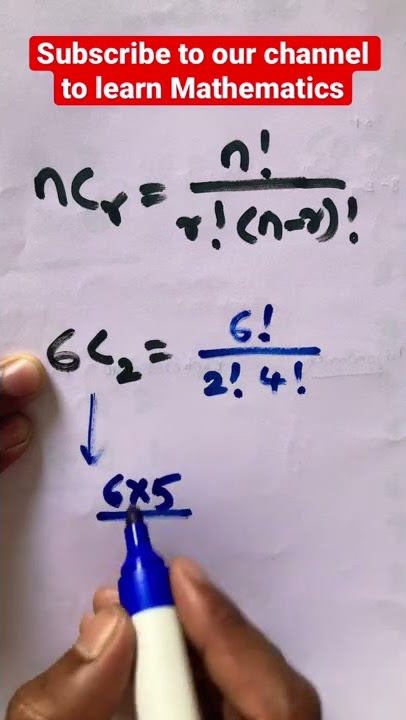 Subscribe to our channel
to learn Mathematics
nCr = n! / r! (n-r)!
6C2 = 6! / 2! 4!
6x5